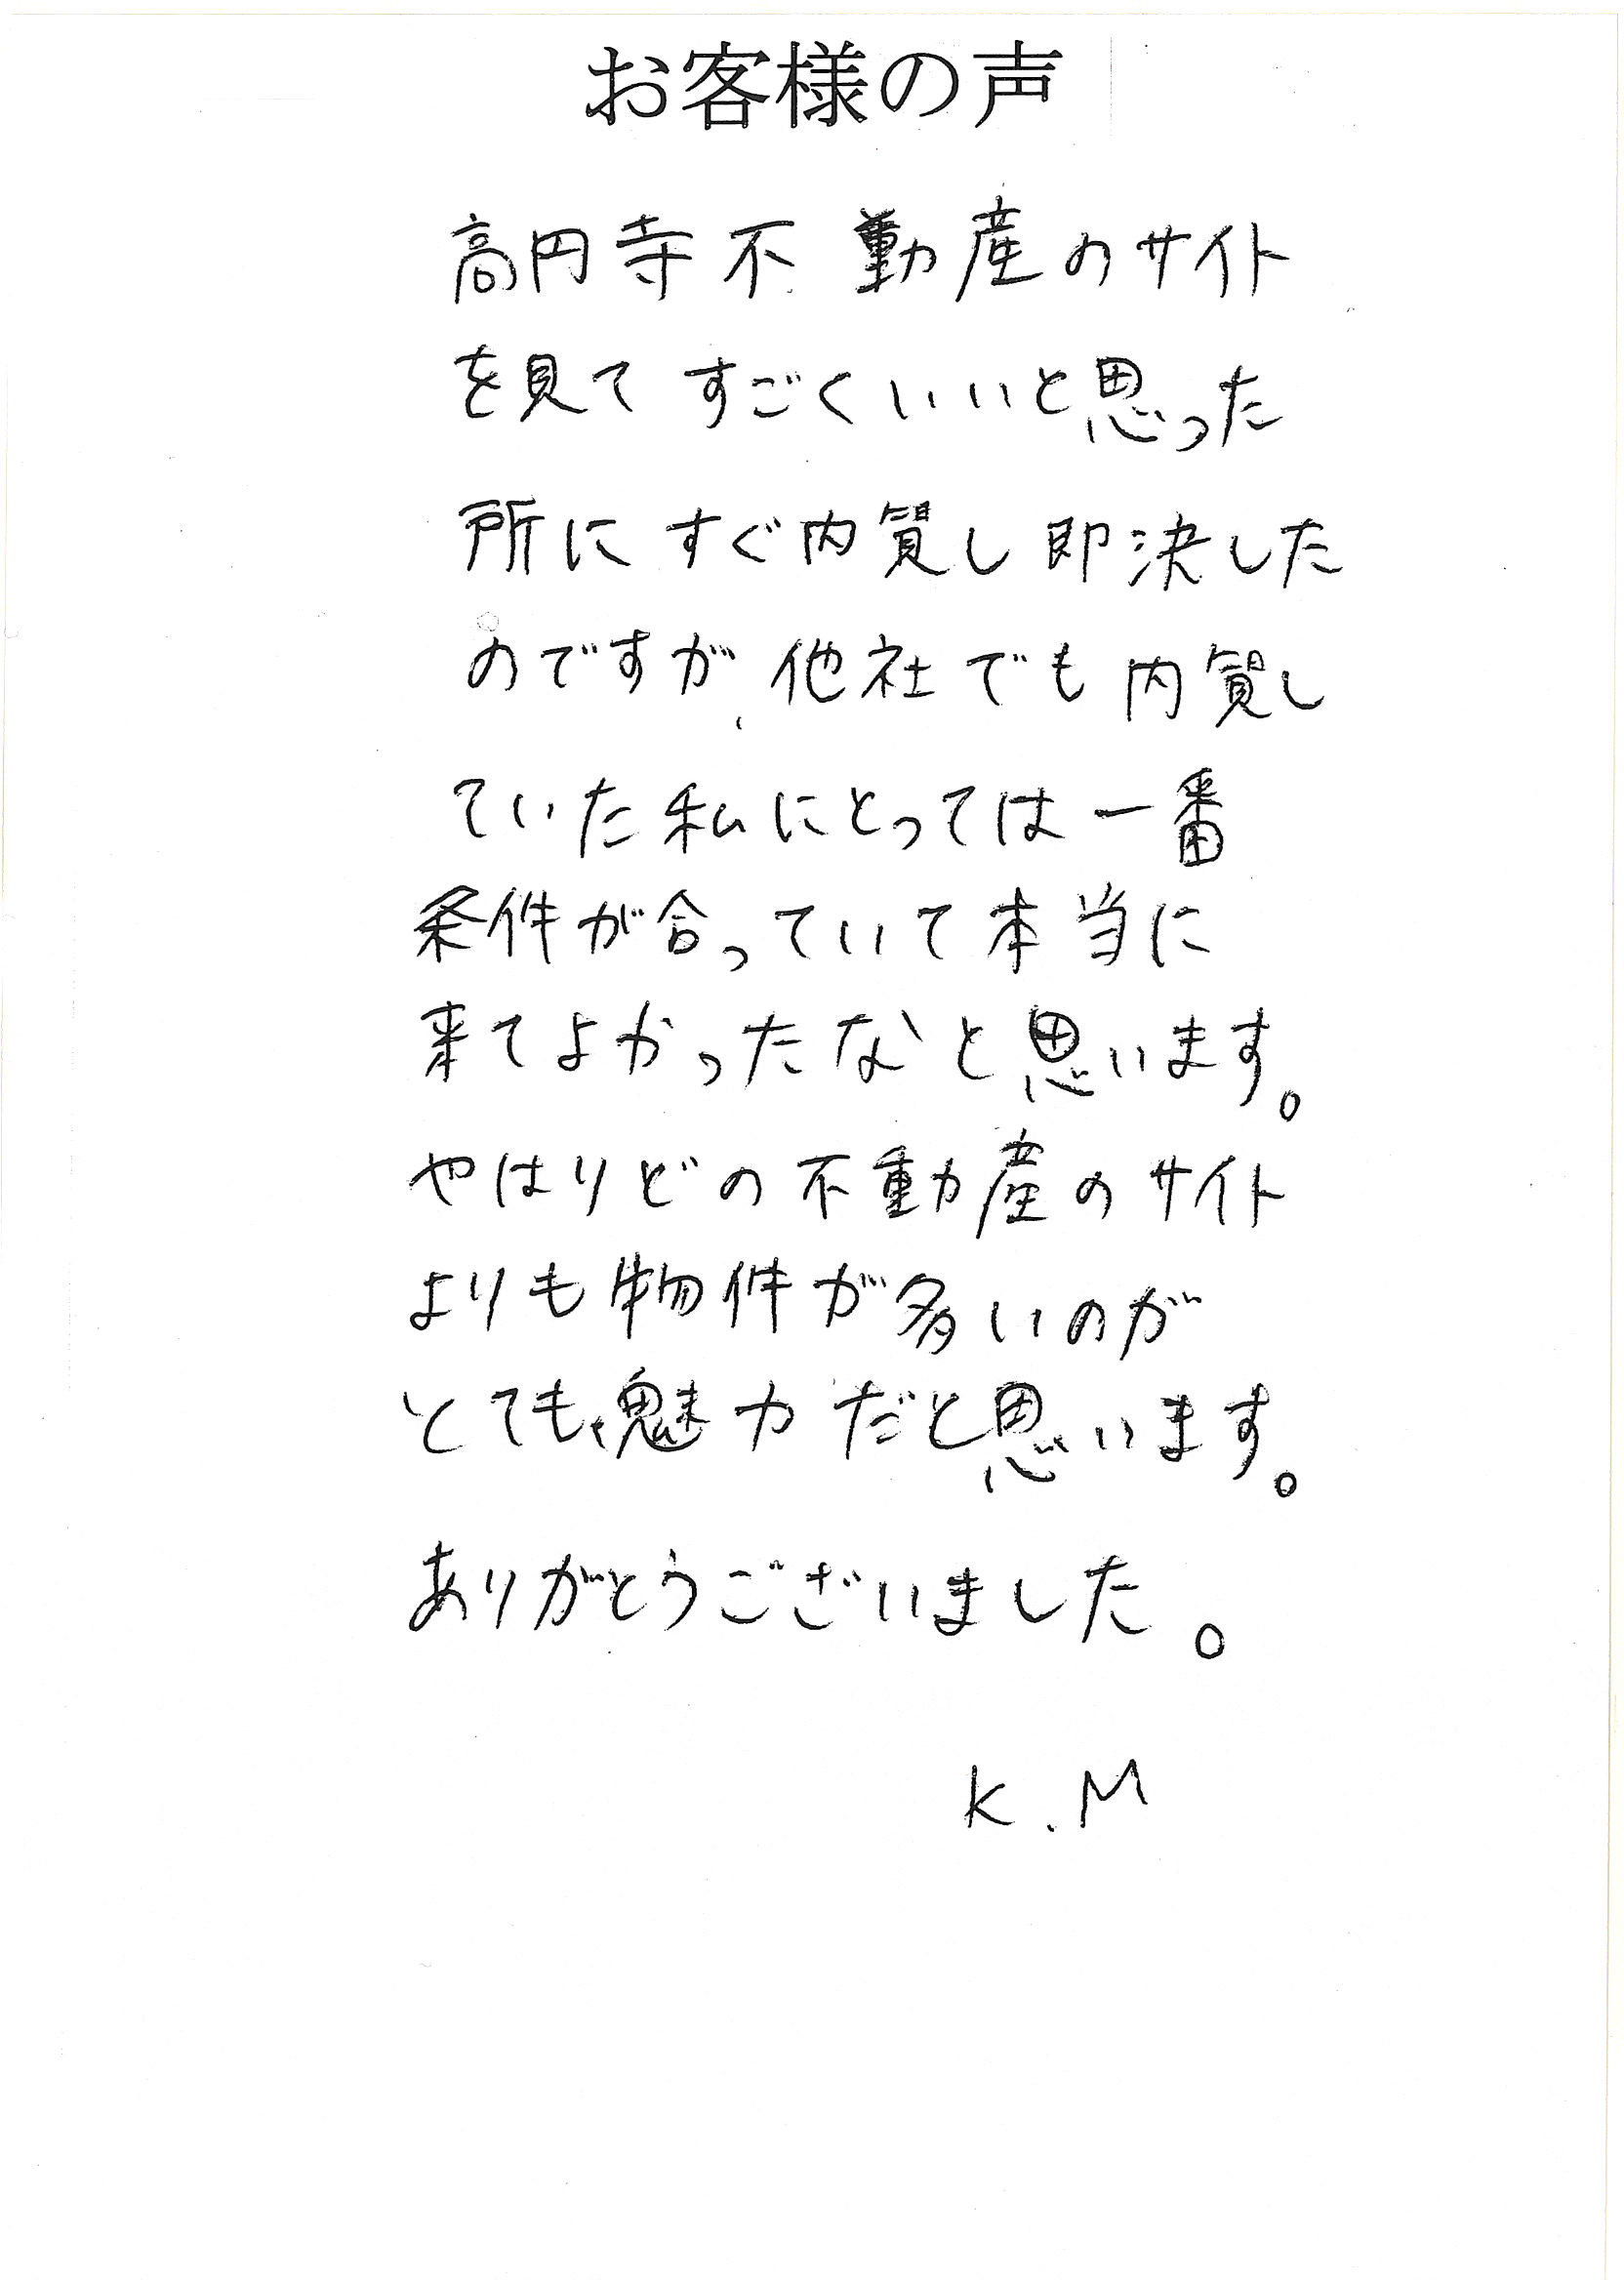 お客様の声
高円寺不動産のサイト
を見てすごくいいと思った
所にすぐ内覧し即決した
のですが、他社でも内覧し
ていた私にとっては一番
条件が合っていて本当に
来てよかったなと思います。
やはりどの不動産のサイト
よりも物件が多いのが
とても魅力だと思います。
ありがとうございました。
K.M